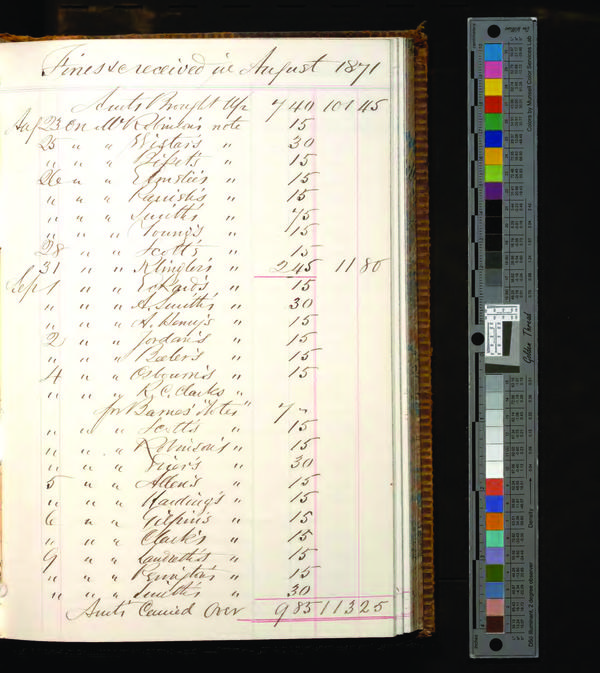 Fines &c received in August 1871
Amts Brought Up 7 40 101 45
Aug 23 on Mr Robinson's note 15
25 " " " 30
" " " " 15
26 " " " 15
" " " " 15
" " " Smith's " 75
" " " Young's " 15
28 " " Scott's " 15
31 " " Klingler's " 2 45 11 80
Sept 1 " " Eckard's " 15
" " " A. Smith's " 30
" " " A. Henry's " 15
2 " " Jordan's " 15
" " " Beeler's " 15
4 " " Osbourn's " 15
" " " R. C. Clarks "
for Barnes' "Notes" 7 "
" " " Scott's " 15
" " " Robinson's " 15
" " " " 30
5 " " Allen's " 15
" " " Harding's " 15
6 " " Gilpin's " 15
" " " Clark's " 15
9 " " Landreth's " 15
" " " " 15
" " " Smith's " 30
Amts Carried Over 9 85 113 25
Golden Thread